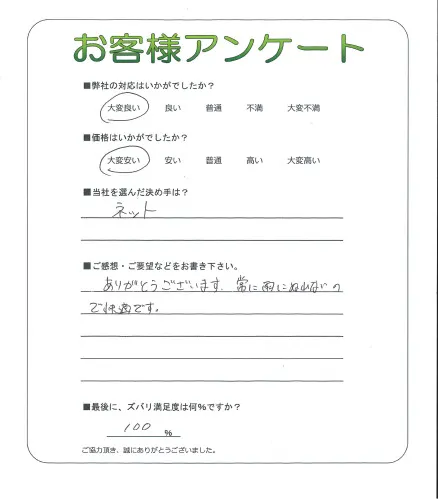 お客様アンケート
■弊社の対応はいかがでしたか？
大変良い 良い 普通 不満 大変不満
■価格はいかがでしたか？
大変安い 安い 普通 高い 大変高い
■当社を選んだ決め手は？
ネット
■ご感想・ご要望などをお書き下さい。
ありがとうございます。常に雨にぬれないの
で快適です。
■最後に、ズバリ満足度は何％ですか？
100 %
ご協力頂き、誠にありがとうございました。